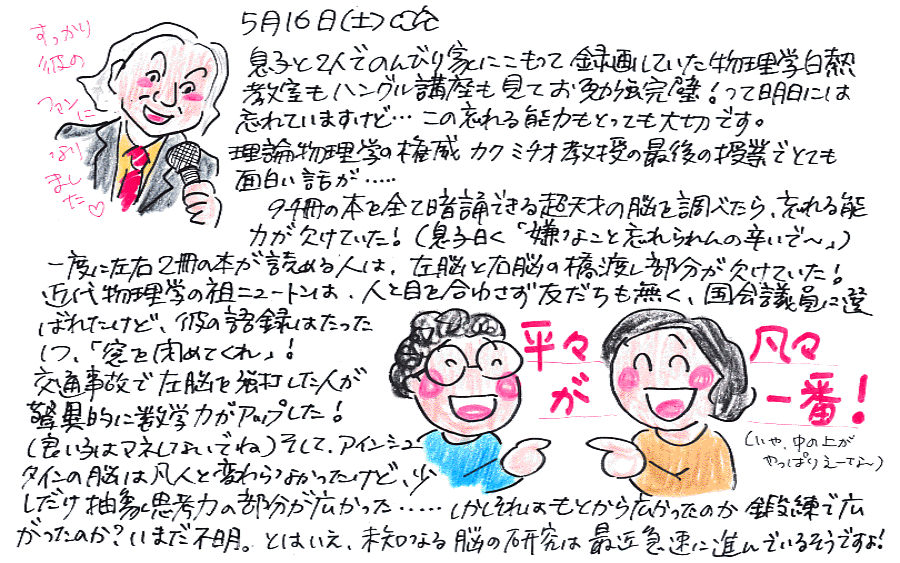 すっかり
彼の
ファンに
なり
まし
た♡
5月16日(土)
息子と2人でのんびり家にこもって録画していた物理学白熱
教室もハングル講座も見てお勉強完璧!って明日には
忘れていますけど…この忘れる能力もとっても大切です。
理論物理学の権威 カク ミチオ教授の最後の授業でとても
面白い話が‥‥‥
94冊の本を全て暗誦できる超天才の脳を調べたら、忘れる能
力が欠けていた!(息子曰く「嫌なこと忘れられんの辛いで〜」)
一度に左右2冊の本が読める人は、左脳と右脳の橋渡し部分が欠けていた!
近代物理学の祖ニュートンは、人と目を合わさず友だちも無く、国会議員に選
ばれたけど、彼の語録はたった
1つ、「窓を閉めてくれ」!
交通事故で左脳を損傷した人が
驚異的に数学力がアップした!
(良い子はマネしないでね)そして、アインシュ
タインの脳は凡人と変わらなかったけど、少
しだけ抽象思考力の部分が広かった‥‥‥しかしそれはもとから広かったのか鍛練で広
がったのか?いまだ不明。とはいえ、未知なる脳の研究は最近急速に進んでいるそうですよ!
平々
が
凡々
一番!
(いや、中の上が
やっぱりえーなぁ〜)